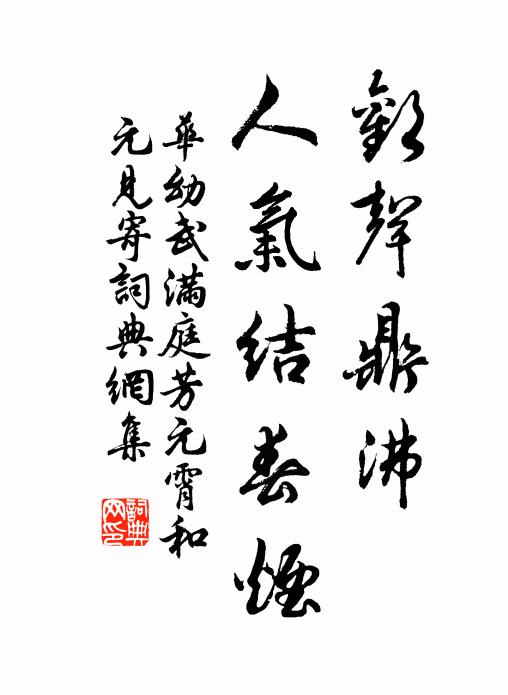 歡聲鼎沸
人氣結春煙
華幼武滿庭芳元霄和
元見寄詞典網集
詞典
网印